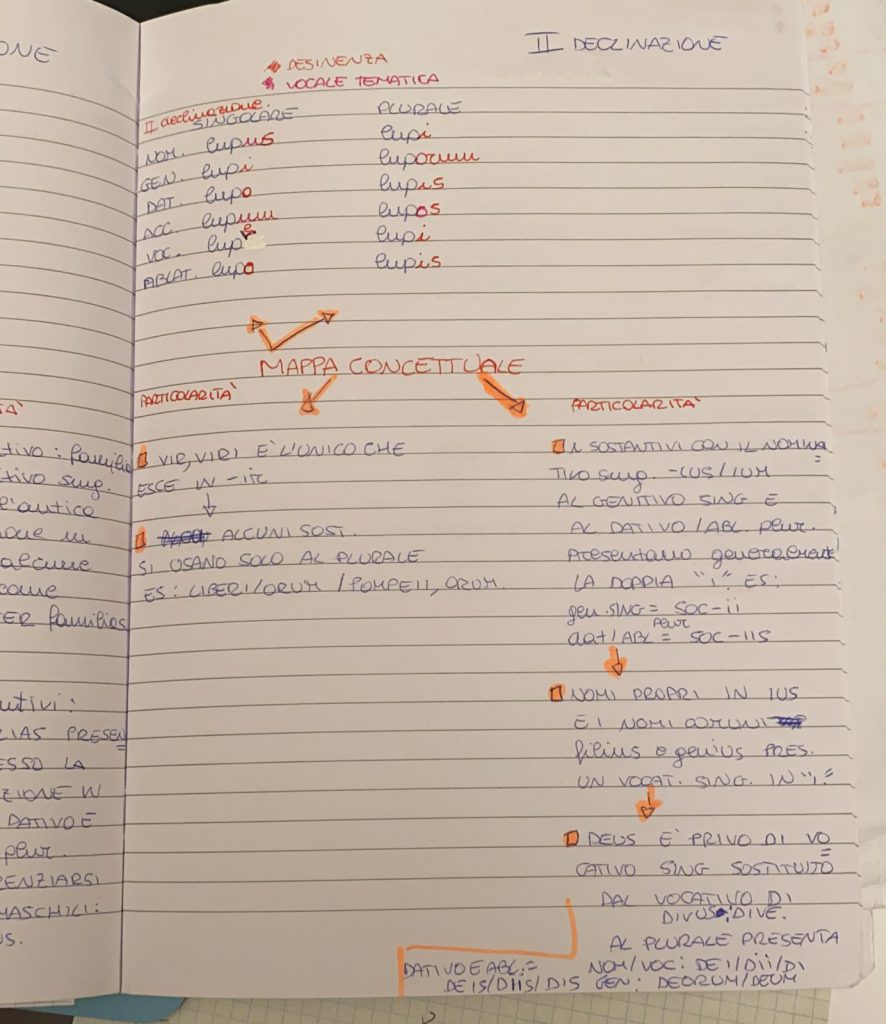 ONE
TÀ
tivo: familia
tivo sing.
l'antico
alcune
come
ER familias
utivi:
LIAS PRESEN
ESSO LA
ZIONE IN
DATIVO E
plur.
RENZIARSI
MASCHILI:
US.
II DECLINAZIONE
DESINENZA
VOCALE TEMATICA
II declinazione.
SINGOLARE PLURALE
NOM. lupus lupi
GEN. lupi luporum
DAT. lupo lupis
ACC. lupum lupos
VOC. lupe lupi
ABLAT. lupo lupis
MAPPA CONCETTUALE
PARTICOLARITÀ
VIR, VIRI È L'UNICO CHE
ESCE IN -ir
ALCUNI SOST.
SI USANO SOLO AL PLURALE
ES: LIBERI/ORUM / POMPEII, ORUM.
PARTICOLARITÀ
I SOSTANTIVI CON IL NOMINA
TIVO sing. -IUS/IUM
AL GENITIVO SING E
AL DATIVO/ABL. plur.
Presentano generalmente
LA DOPPIA "i". ES:
gen. SING = SOC-ii
plur
dat/ABL = SOC-IIS
NOMI PROPRI IN IUS
E I NOMI COMUNI
filius e genius PRES.
UN VOCAT. SING. IN "i"
DEUS È PRIVO DI VO
CATIVO SING SOSTITUITO
DAL VOCATIVO DI
DIVUS, DIVE.
AL PLURALE PRESENTA
NOM/VOC: DEI/Dii/DI
GEN: DEORUM/DEUM
DATIVO E ABL. =
DEIS/DIIS/DIS